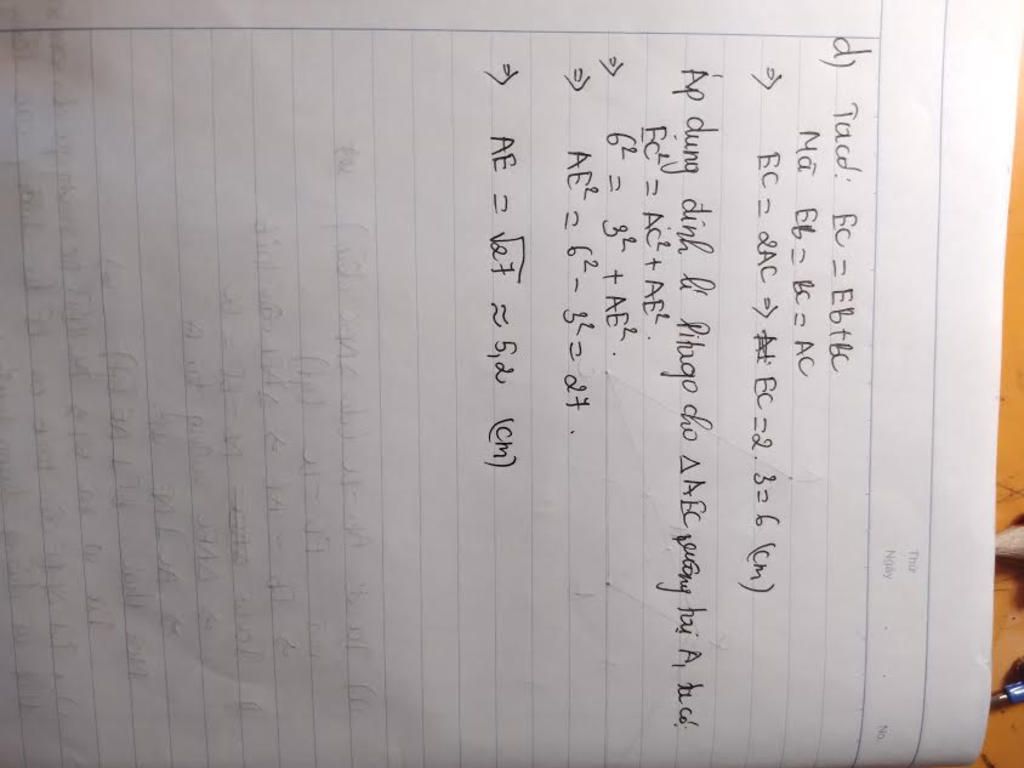 Thứ
Ngày
No.
d) Ta có: EC = EB + BC
Mà EB = BC = AC
⇒ EC = 2AC ⇒ EC = 2.3 = 6 (cm)
Áp dụng định lí Pitago cho △AEC vuông tại A, ta có
EC² = AC² + AE².
⇒ 6² = 3² + AE².
⇒ AE² = 6² - 3² = 27.
⇒ AE = √27 ≈ 5,2 (cm)